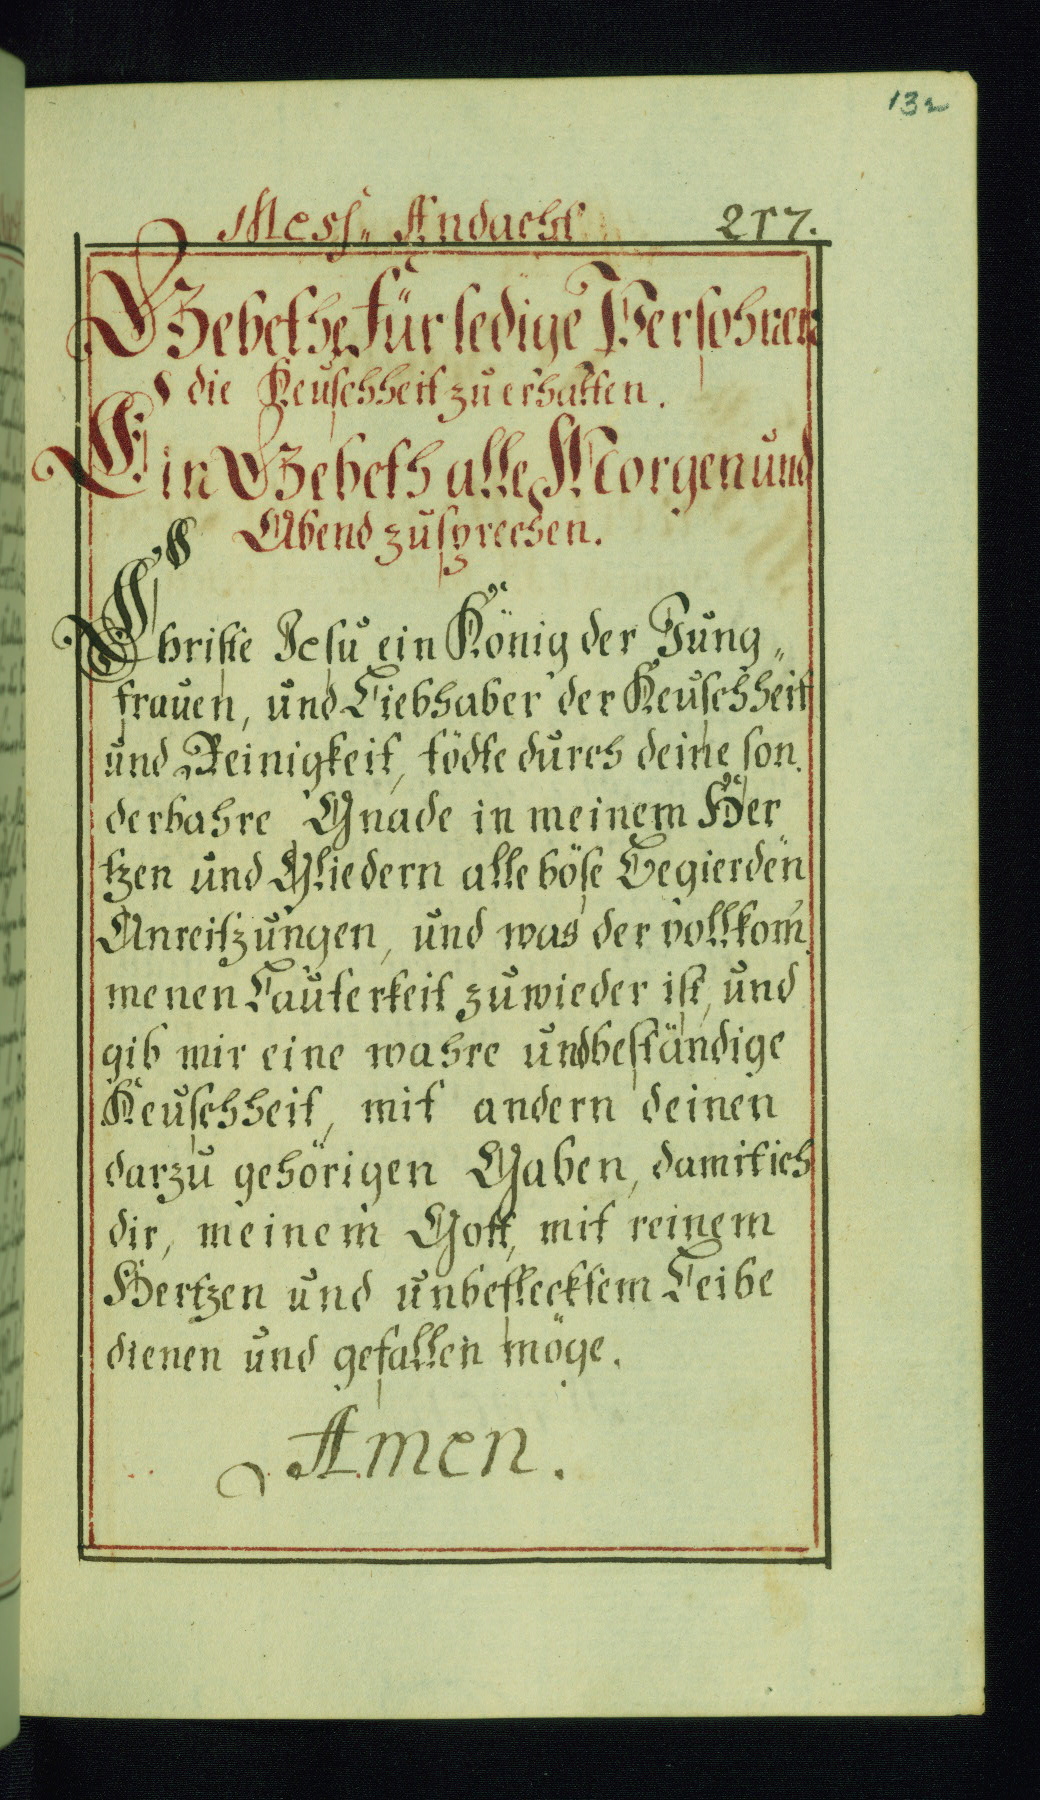 132
Mess„ Andacht 217.
Gebethe für ledige Persohnen
die Keuschheit zu erhalten.
Ein Gebeth alle Morgen und
Abend zu sprechen.
Christe Jesu ein König der Jung„
frauen, und Liebhaber der Keuschheit
und Reinigkeit, tödte durch deine son
derbahre Gnade in meinem Her
tzen und Gliedern alle böse Begierden
Anreitzungen, und was der vollkom
menen Lauterkeit zuwieder ist, und
gib mir eine wahre und beständige
Keuschheit, mit andern deinen
darzu gehörigen Gaben, damit ich
dir, meinem Gott, mit reinem
Hertzen und unbeflecktem Leibe
dienen und gefallen möge.
Amen.